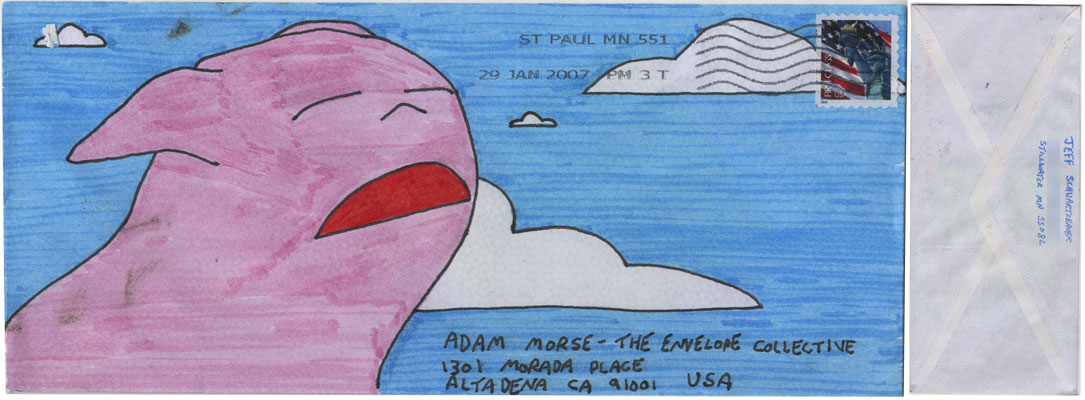 ST PAUL MN 551
29 JAN 2007 PM 3 T
ADAM MORSE - THE ENVELOPE COLLECTIVE
1301 MORADA PLACE
ALTADENA CA 91001 USA
JEFF
STILLWATER MN 55082